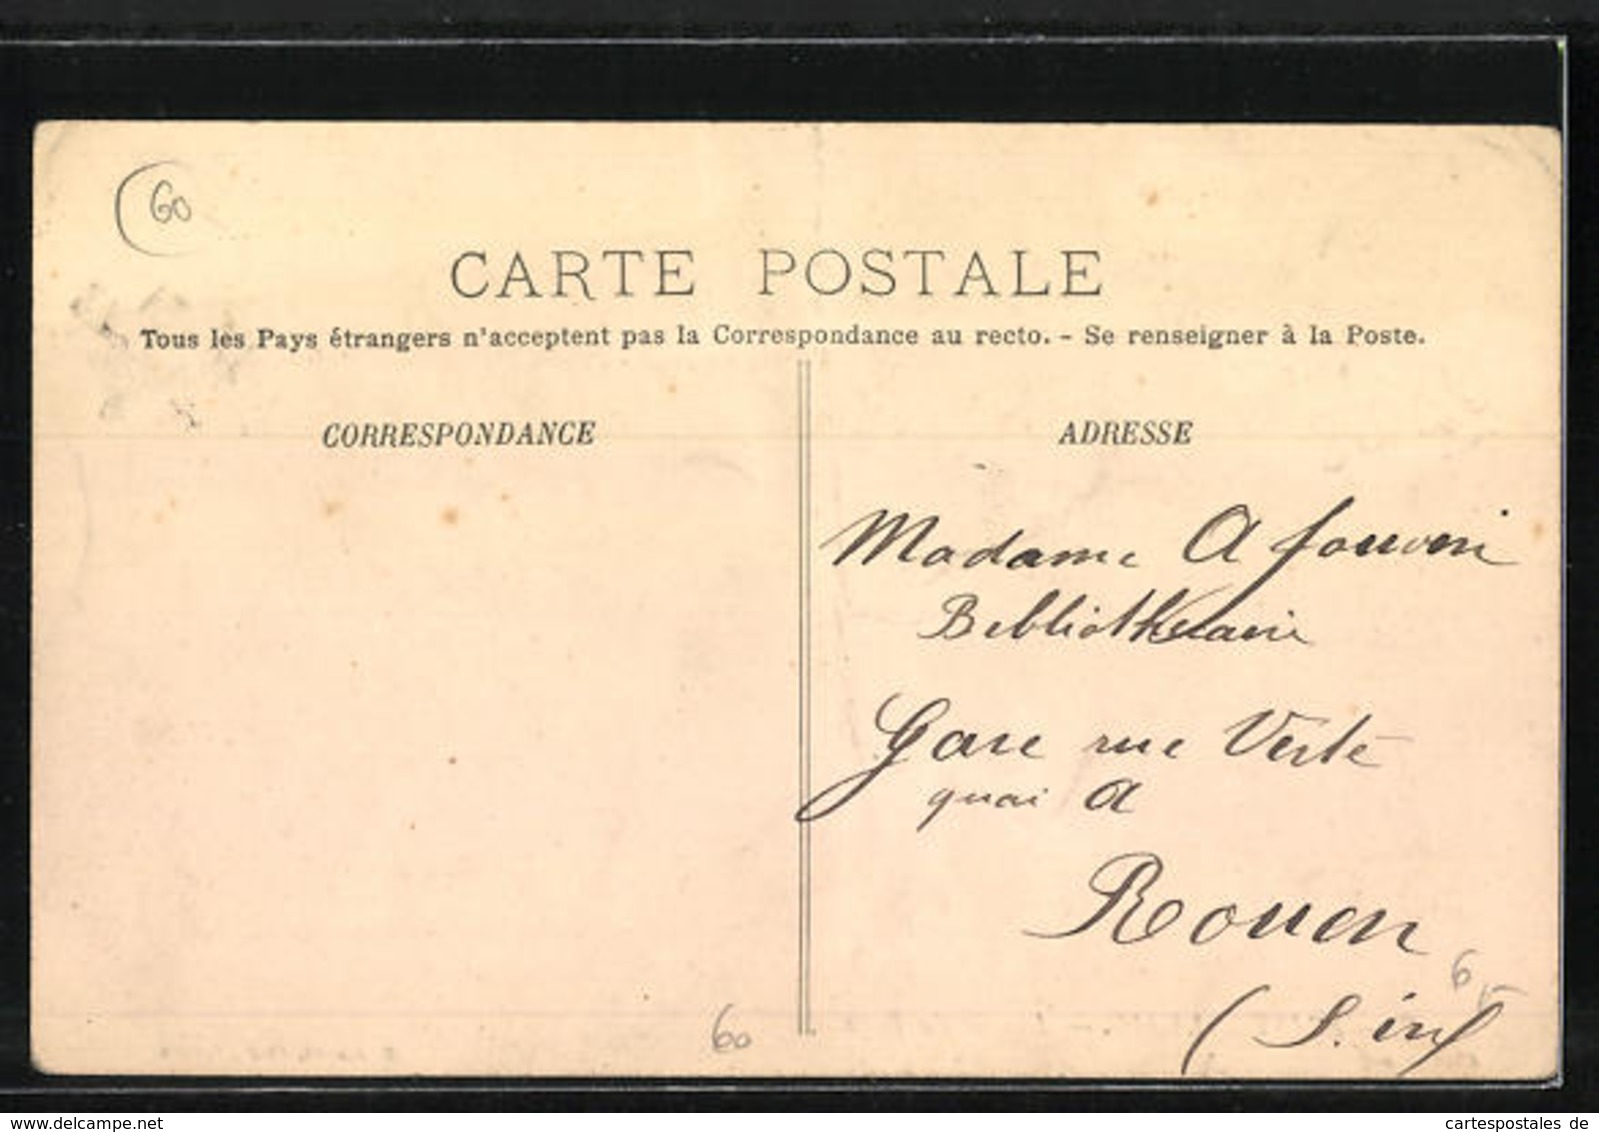 60
CARTE POSTALE
Tous les Pays étrangers n'acceptent pas la Correspondance au recto. - Se renseigner à la Poste.
CORRESPONDANCE
ADRESSE
Madame A
Bibliothécaire
Gare rue Verte
quai A
Rouen
6
(S. inf)
60
www.delcampe.net
cartespostales de